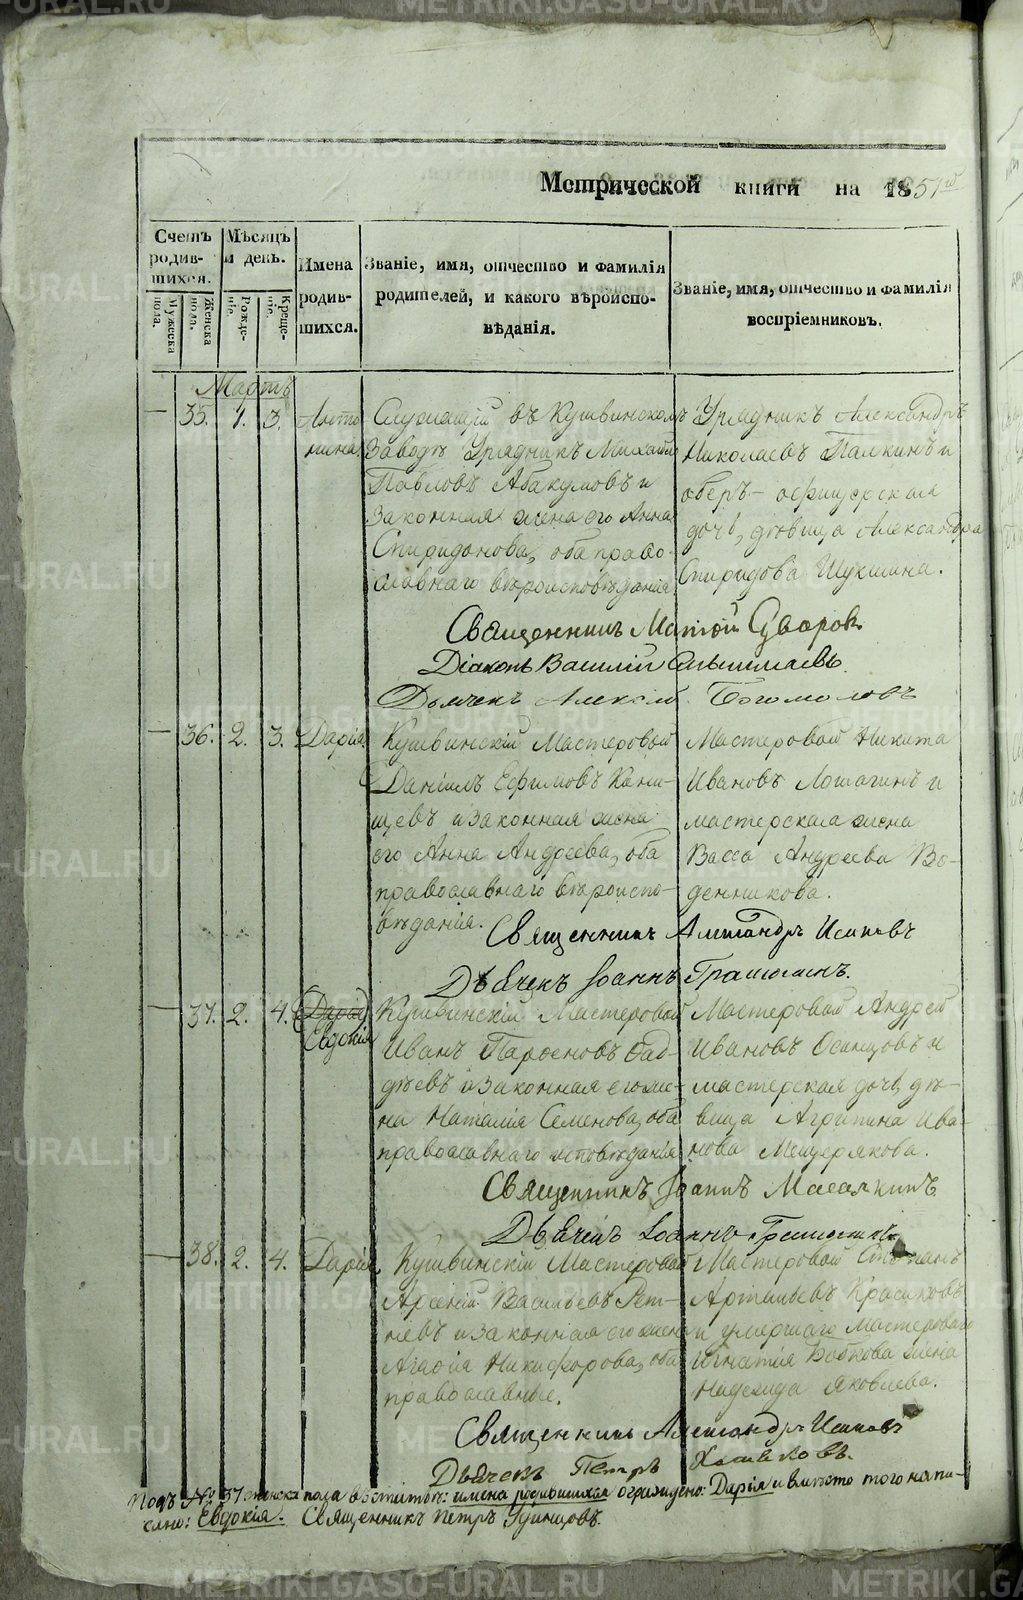 METRIKI.GASO-URAL.RU
Метрической книги на 1851й
Счетъ родив-шихся.
Мужеска пола.
Женска пола.
Мѣсяцъ и день.
Рожде-нiе.
Креще-нiе.
Имена родив-шихся.
Званiе, имя, отчество и фамилiя
родителей, и какого вѣроиспо-
вѣданiя.
Званiе, имя, отчество и фамилiя
воспрiемниковъ.
Мартъ
35. 1. 3. Анто-
нина
Служащiй въ Кушвинскомъ
Заводѣ Урядникъ Михаилъ
Павловъ Абакумовъ и
законная жена его Анна
Спиридонова, оба право-
славнаго вѣроисповѣданiя
Урядникъ Александръ
Николаевъ Палкинъ и
оберъ-офицерская
дочь, дѣвица Александра
Спиридова Шукшина.
Священникъ
Дiаконъ Василiй
Дьячекъ Алексiй Богомоловъ
36. 2. 3. Дарiя
Кушвинскiй Мастеровой
Данiилъ Ефимовъ Кани-
щевъ и законная жена
его Анна Андреева, оба
православнаго вѣроиспо-
вѣданiя.
Мастеровой Никита
Ивановъ Лошагинъ и
мастерская жена
Васса Андреева Во-
денникова.
Священникъ Александръ
Дьячекъ Iоаннъ
37. 2. 4. Дарiя
Евдокiя
Кушвинскiй Мастеровой
Иванъ Парфеновъ Фад-
дѣевъ и законная его же-
на Наталiя Семенова, оба
православнаго исповѣданiя
Мастеровой Андрей
Ивановъ Осинцовъ и
мастерская дочь, дѣ-
вица Агрипина Ива-
нова Мещерякова.
Священникъ Iоаннъ
Дьячекъ Iоаннъ
38. 2. 4. Дарiя
Кушвинскiй Мастеровой
Арсенiй Васильевъ Рет-
невъ и законная его жена
Агафiя Никифорова, оба
православные.
Мастеровой Степанъ
Артемьевъ Красиковъ
и умершаго Мастероваго
Игнатiя Бобкова жена
Надежда Яковлева.
Священникъ Александръ
Дьячекъ Петръ Хотьковъ.
Подъ № 37 женска пола въ статьѣ: имена родившихся ограждено: Дарiя и вмѣсто того напи-
сано: Евдокiя. Священникъ Петръ